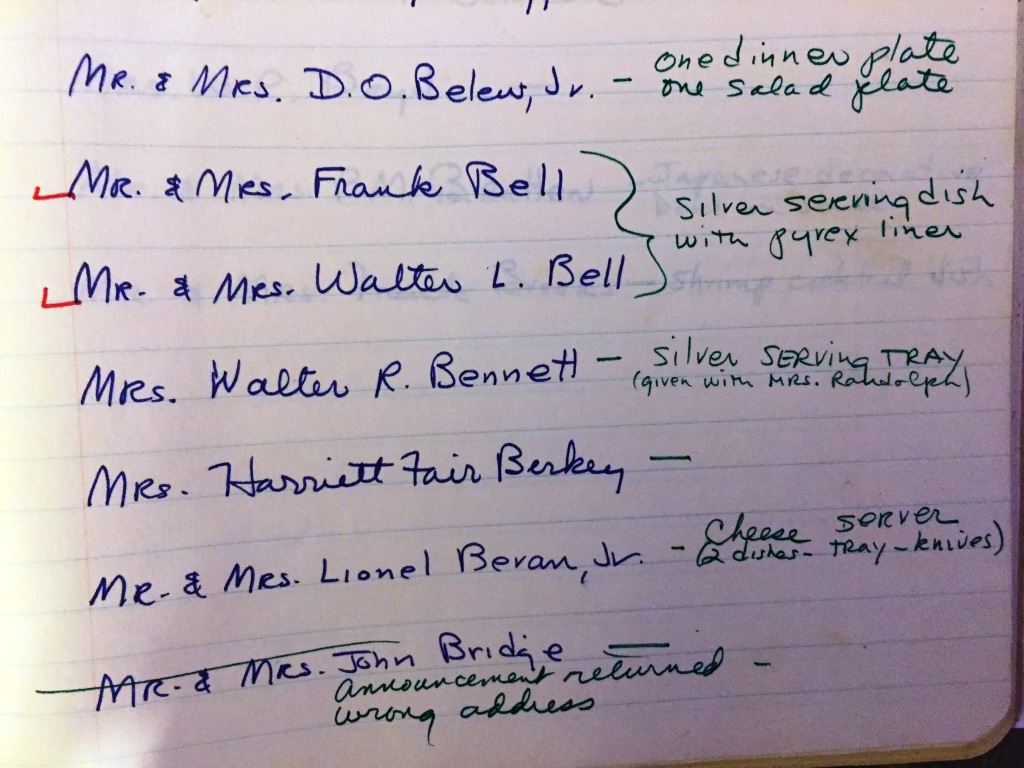 Mr. & Mrs. D.O. Belew, Jr. - one dinner plate
one salad plate
Mr. & Mrs. Frank Bell
Silver serving dish
with pyrex liner
Mr. & Mrs. Walter L. Bell
Mrs. Walter R. Bennett - Silver SERVING TRAY
(given with MRS. Randolph)
Mrs. Harriett Fair Berkey -
Mr. & Mrs. Lionel Bevan, Jr. - Cheese SERVER
(2 dishes - TRAY - knives)
Mr. & Mrs. John Bridge -
announcement returned -
wrong address